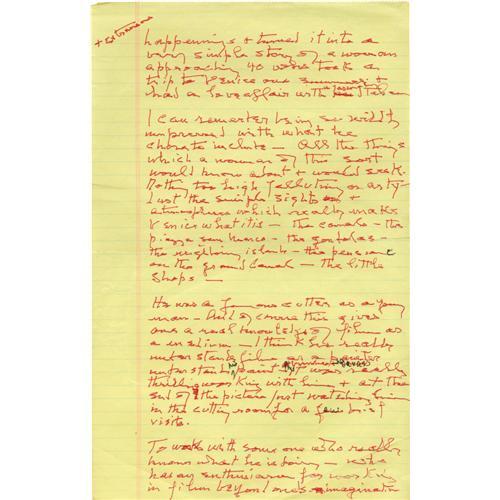 + extraneous
happenings + turned it into a
very simple story of a woman
approaching 40 who took a
trip to Venice one summer +
had a love affair with an Italian
I can remember being so wildly
impressed with what he
chose to include — All the things
which a woman of this sort
would know about + would seek.
Nothing too high falluting or arty—
Just the simple sights +
atmosphere which really make
Venice what it is — the canals — the
piazza san Marco — the gondolas —
the neighboring islands — the pensione
on the grand canal — the little
shops —
He was a famous cutter as a young
man — And of course this gives
one a real knowledge of film as
a medium — I think he really
understands film as a painter
understands paint It was really
thrilling working with him + at the
end of the picture just watching him
in the cutting room for a few brief
visits.
To work with some one who really
knows what he is doing — who
has an enthusiasm for working
in film beyond ones imagination